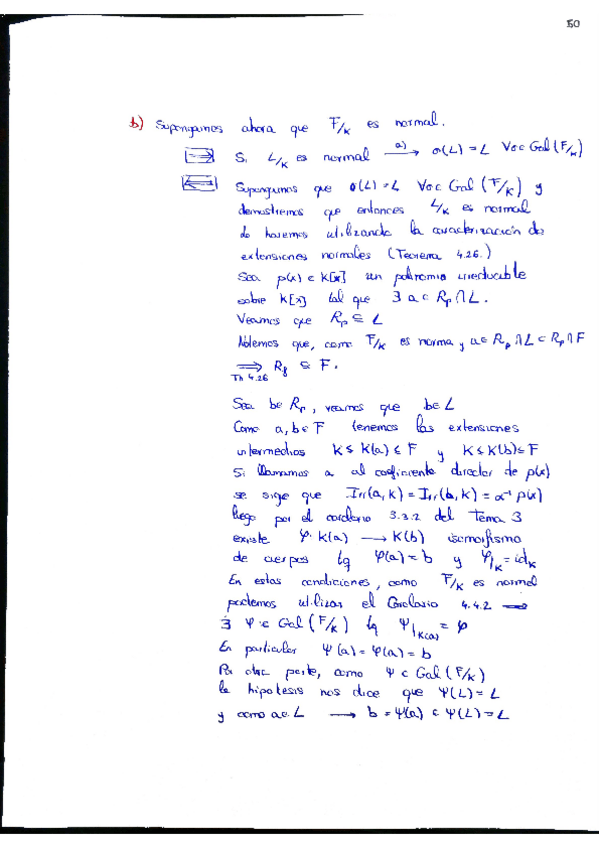 50
b) Supongamos ahora que F/K es normal.
⟹ Si L/K es normal a)⟶ σ(L)=L ∀σ∈Gal(F/K)
⟸ Supongamos que σ(L)=L ∀σ∈Gal(F/K) y
demostremos que entonces L/K es normal
Lo hacemos utilizando la caracterización de
extensiones normales (Teorema 4.26.)
Sea p(x)∈K[x] un polinomio irreducible
sobre K[x] tal que ∃ a∈Rp∩L.
Veamos que Rp⊆L
Notemos que, como F/K es norma y a∈Rp∩L⊂Rp∩F
⟹ Rf ⊆ F.
Th 4.26
Sea b∈Rp, veamos que b∈L
Como a,b∈F tenemos las extensiones
intermedios K≤K(a)≤F y K≤K(b)≤F
Si llamamos α al coeficiente director de p(x)
se sige que Irr(a,K)=Irr(b,K)=α⁻¹p(x)
luego por el corolario 3.3.2 del Tema 3
existe φ:K(a)⟶K(b) isomorfismo
de cuerpos tq φ(a)=b y φ|K=idK
En estas condiciones, como F/K es normal
podemos utilizar el Corolario 4.4.2 ⟹
∃ Ψ∈Gal(F/K) tq Ψ|K(a)=φ
En particular Ψ(a)=φ(a)=b
Por otra parte, como Ψ∈Gal(F/K)
la hipotesis nos dice que Ψ(L)=L
y como a∈L ⟶ b=Ψ(a)∈Ψ(L)=L